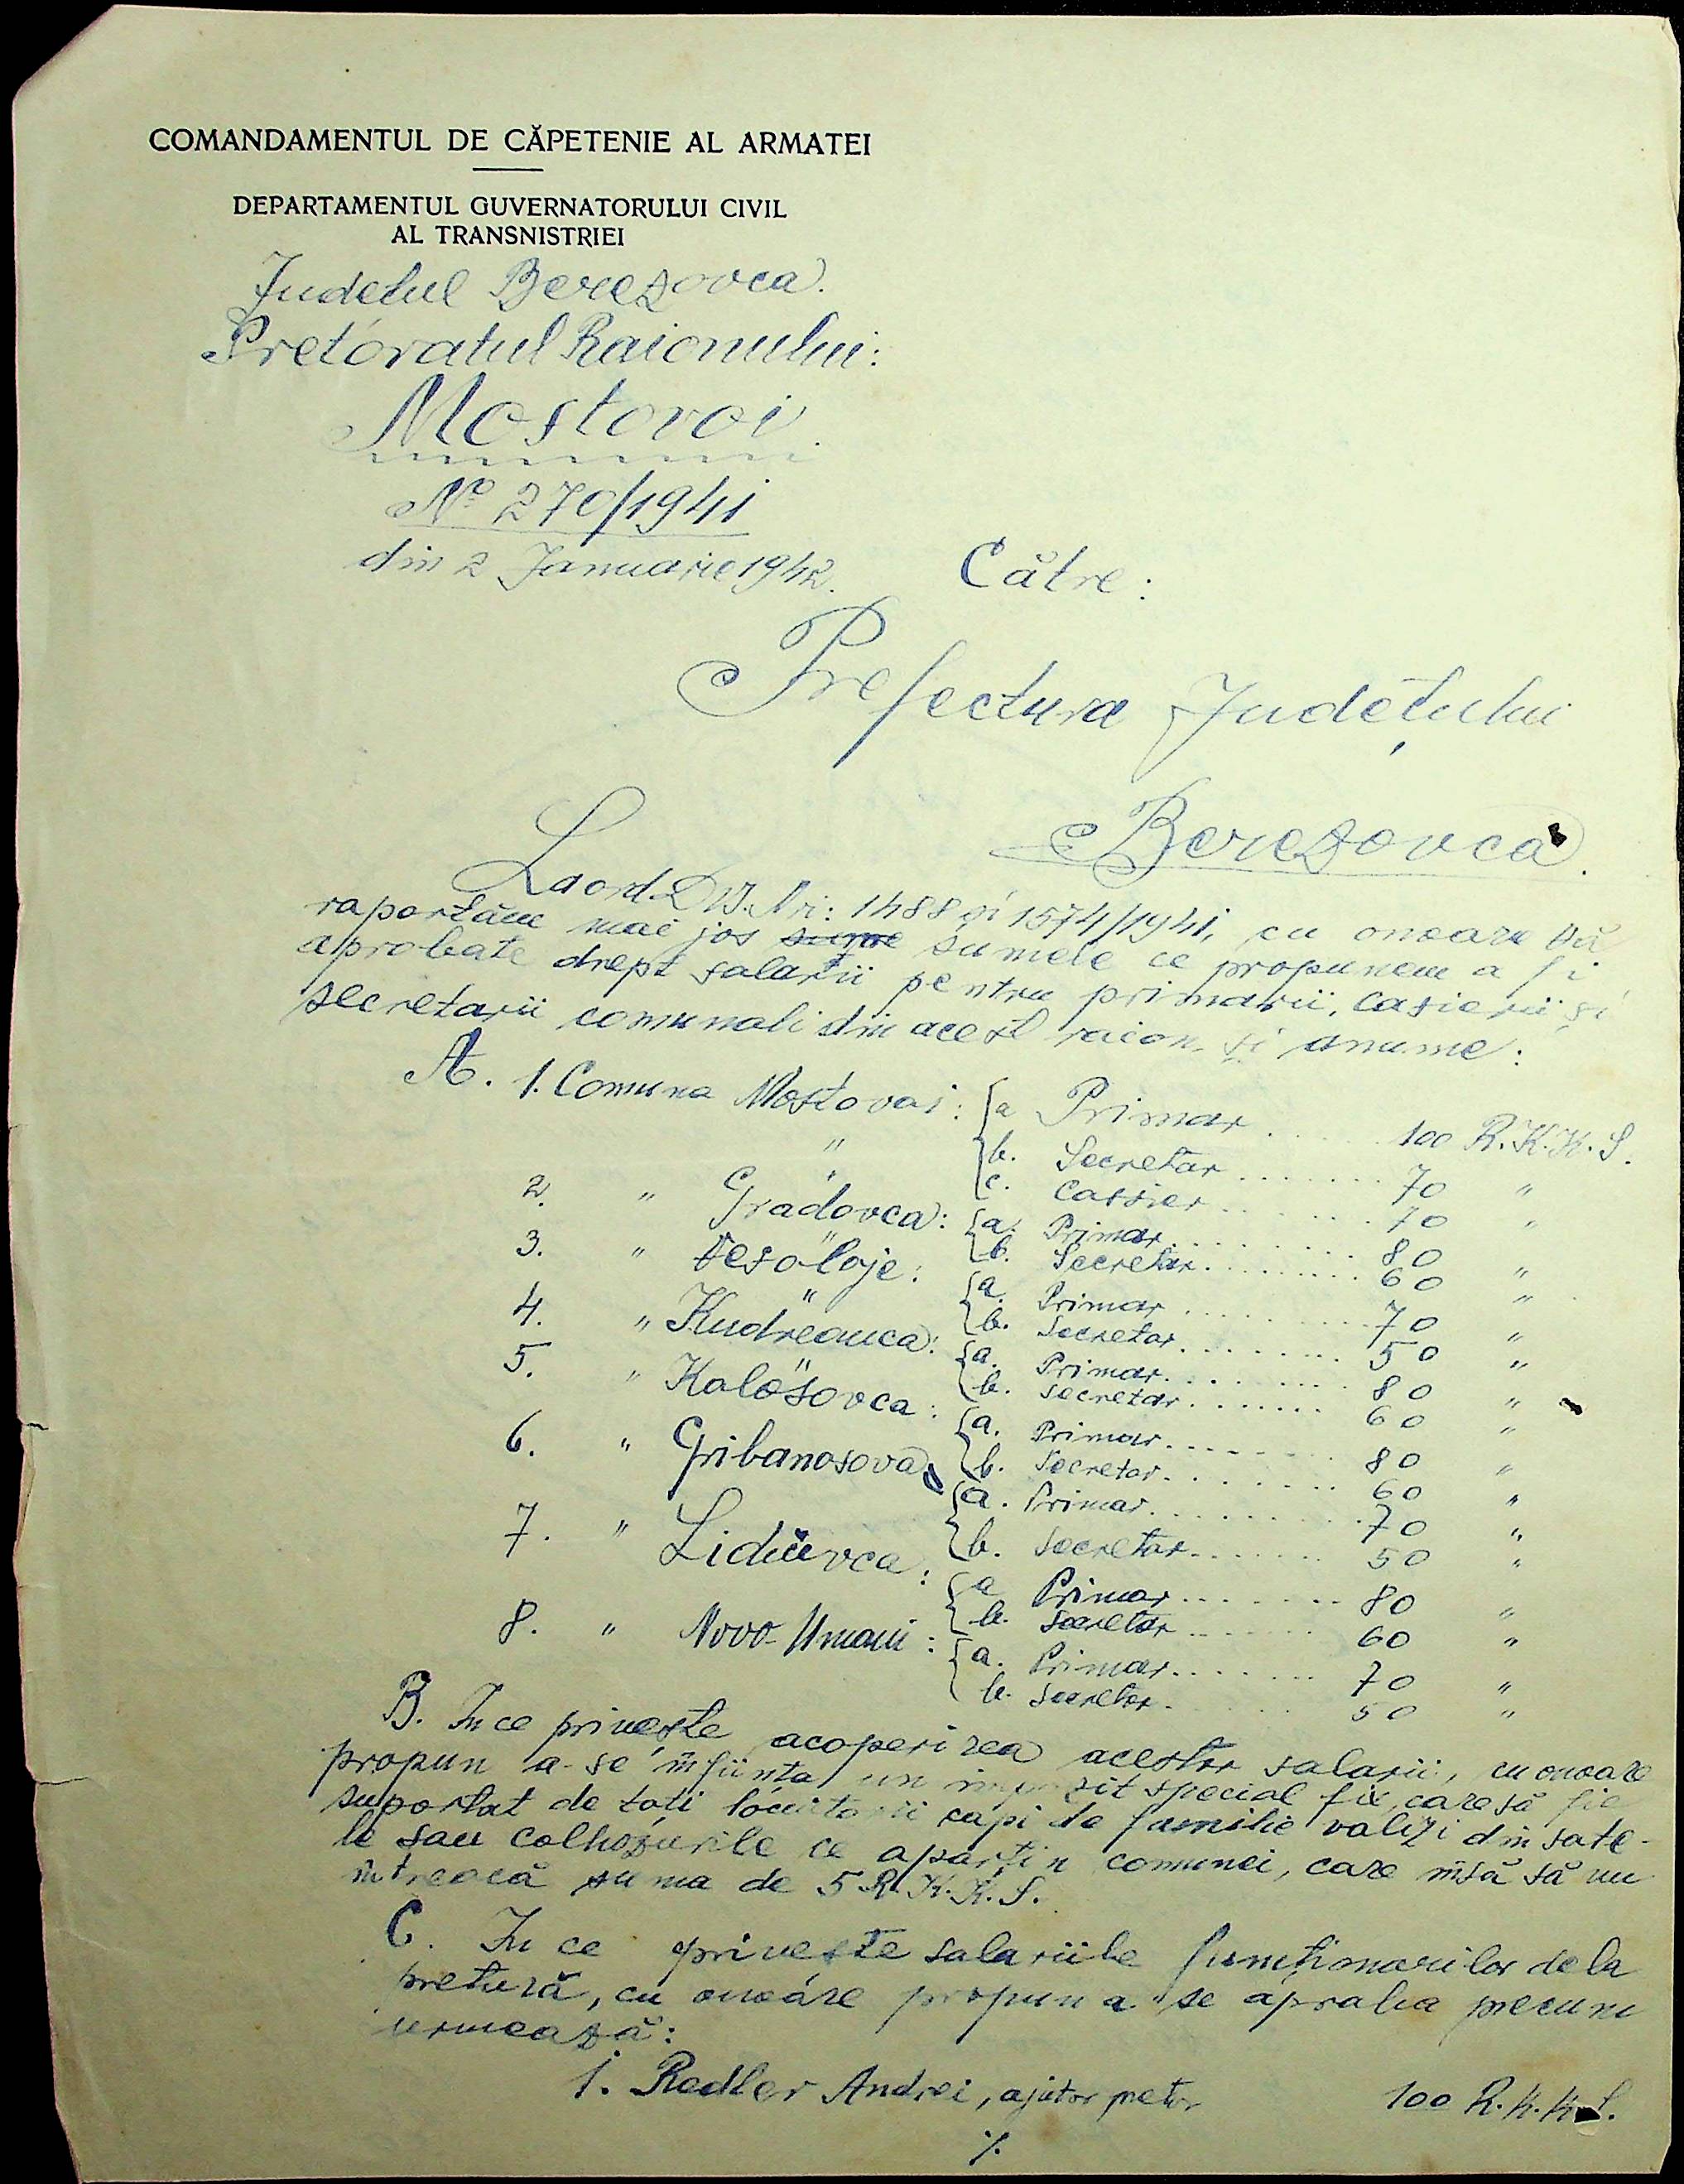 COMANDAMENTUL DE CĂPETENIE AL ARMATEI
DEPARTAMENTUL GUVERNATORULUI CIVIL
AL TRANSNISTRIEI
Județul Berezovca.
Pretoratul Raionului:
Mostovoi.
Nº 270/1941
din 2 Januarie 1942.
Către:
Prefectura Județului
Berezovca.
La ord. D V. Nri: 1488 și 1574/1941, cu onoare vă
raportăm mai jos sumele ce propunem a fi
aprobate drept salarii pentru primarii, casierii și
secretarii comunali din acest raion și anume:
A. 1. Comuna Mostovoi: a Primar 100 R.K.K.S.
" b. Secretar 70 "
" c. Cassier 70 "
2. " Gradovca: a. Primar 80 "
" b. Secretar 60 "
3. " Vesăloje: a. Primar 70 "
" b. Secretar 50 "
4. " Kudreauca: a. Primar 80 "
" b. Secretar 60 "
5. " Kolosovca: a. Primar 80 "
b. Secretar 60 "
6. " Gribanosova a. Primar 70 "
b. Secretar 50 "
7. " Lidievca: a Primar 80 "
b. Secretar 60 "
8. " Novo-Umani: a. Primar 70 "
b. Secretar 50 "
B. In ce privește acoperirea acestor salarii, cu onoare
propun a-se înființa un impozit special fix, care să fie
suportat de toți locuitorii capi de familie valizi din sate-
le sau colhozurile ce aparțin comunei, care însă să nu
întreacă suma de 5 R.K.K.S.
C. In ce privește salariile funcționarilor dela
pretură, cu onoare propun a se aproba precum
urmează:
1. Redler Andrei, ajutor pretor 100 R.K.K.S.
·/.